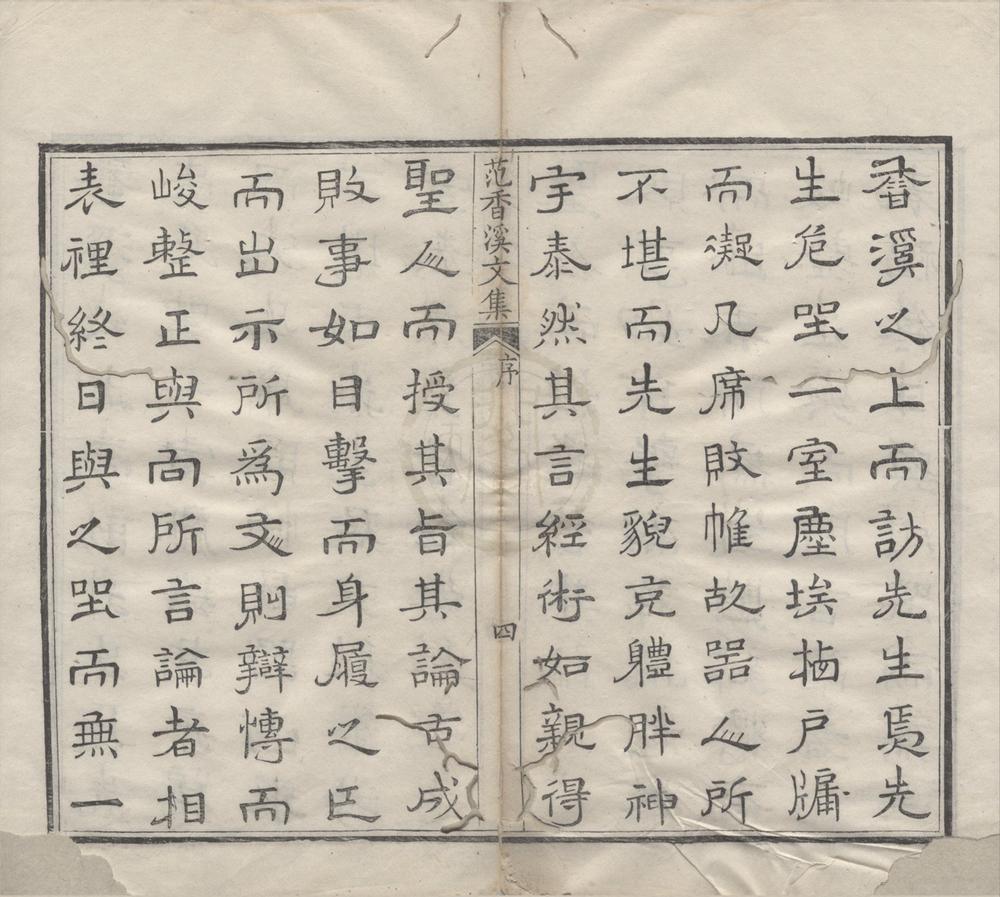 香溪之上而訪先生焉先
生危坐一室塵埃栖戸牖
而凝几席敗帷故器人所
不堪而先生貌充軆胖神
宇泰然其言經術如親得
范香溪文集 序 四
聖人而授其旨其論古成
敗事如目擊而身履之已
而出示所爲文則辯愽而
峻整正與向所言論者相
表裡終日與之坐而無一